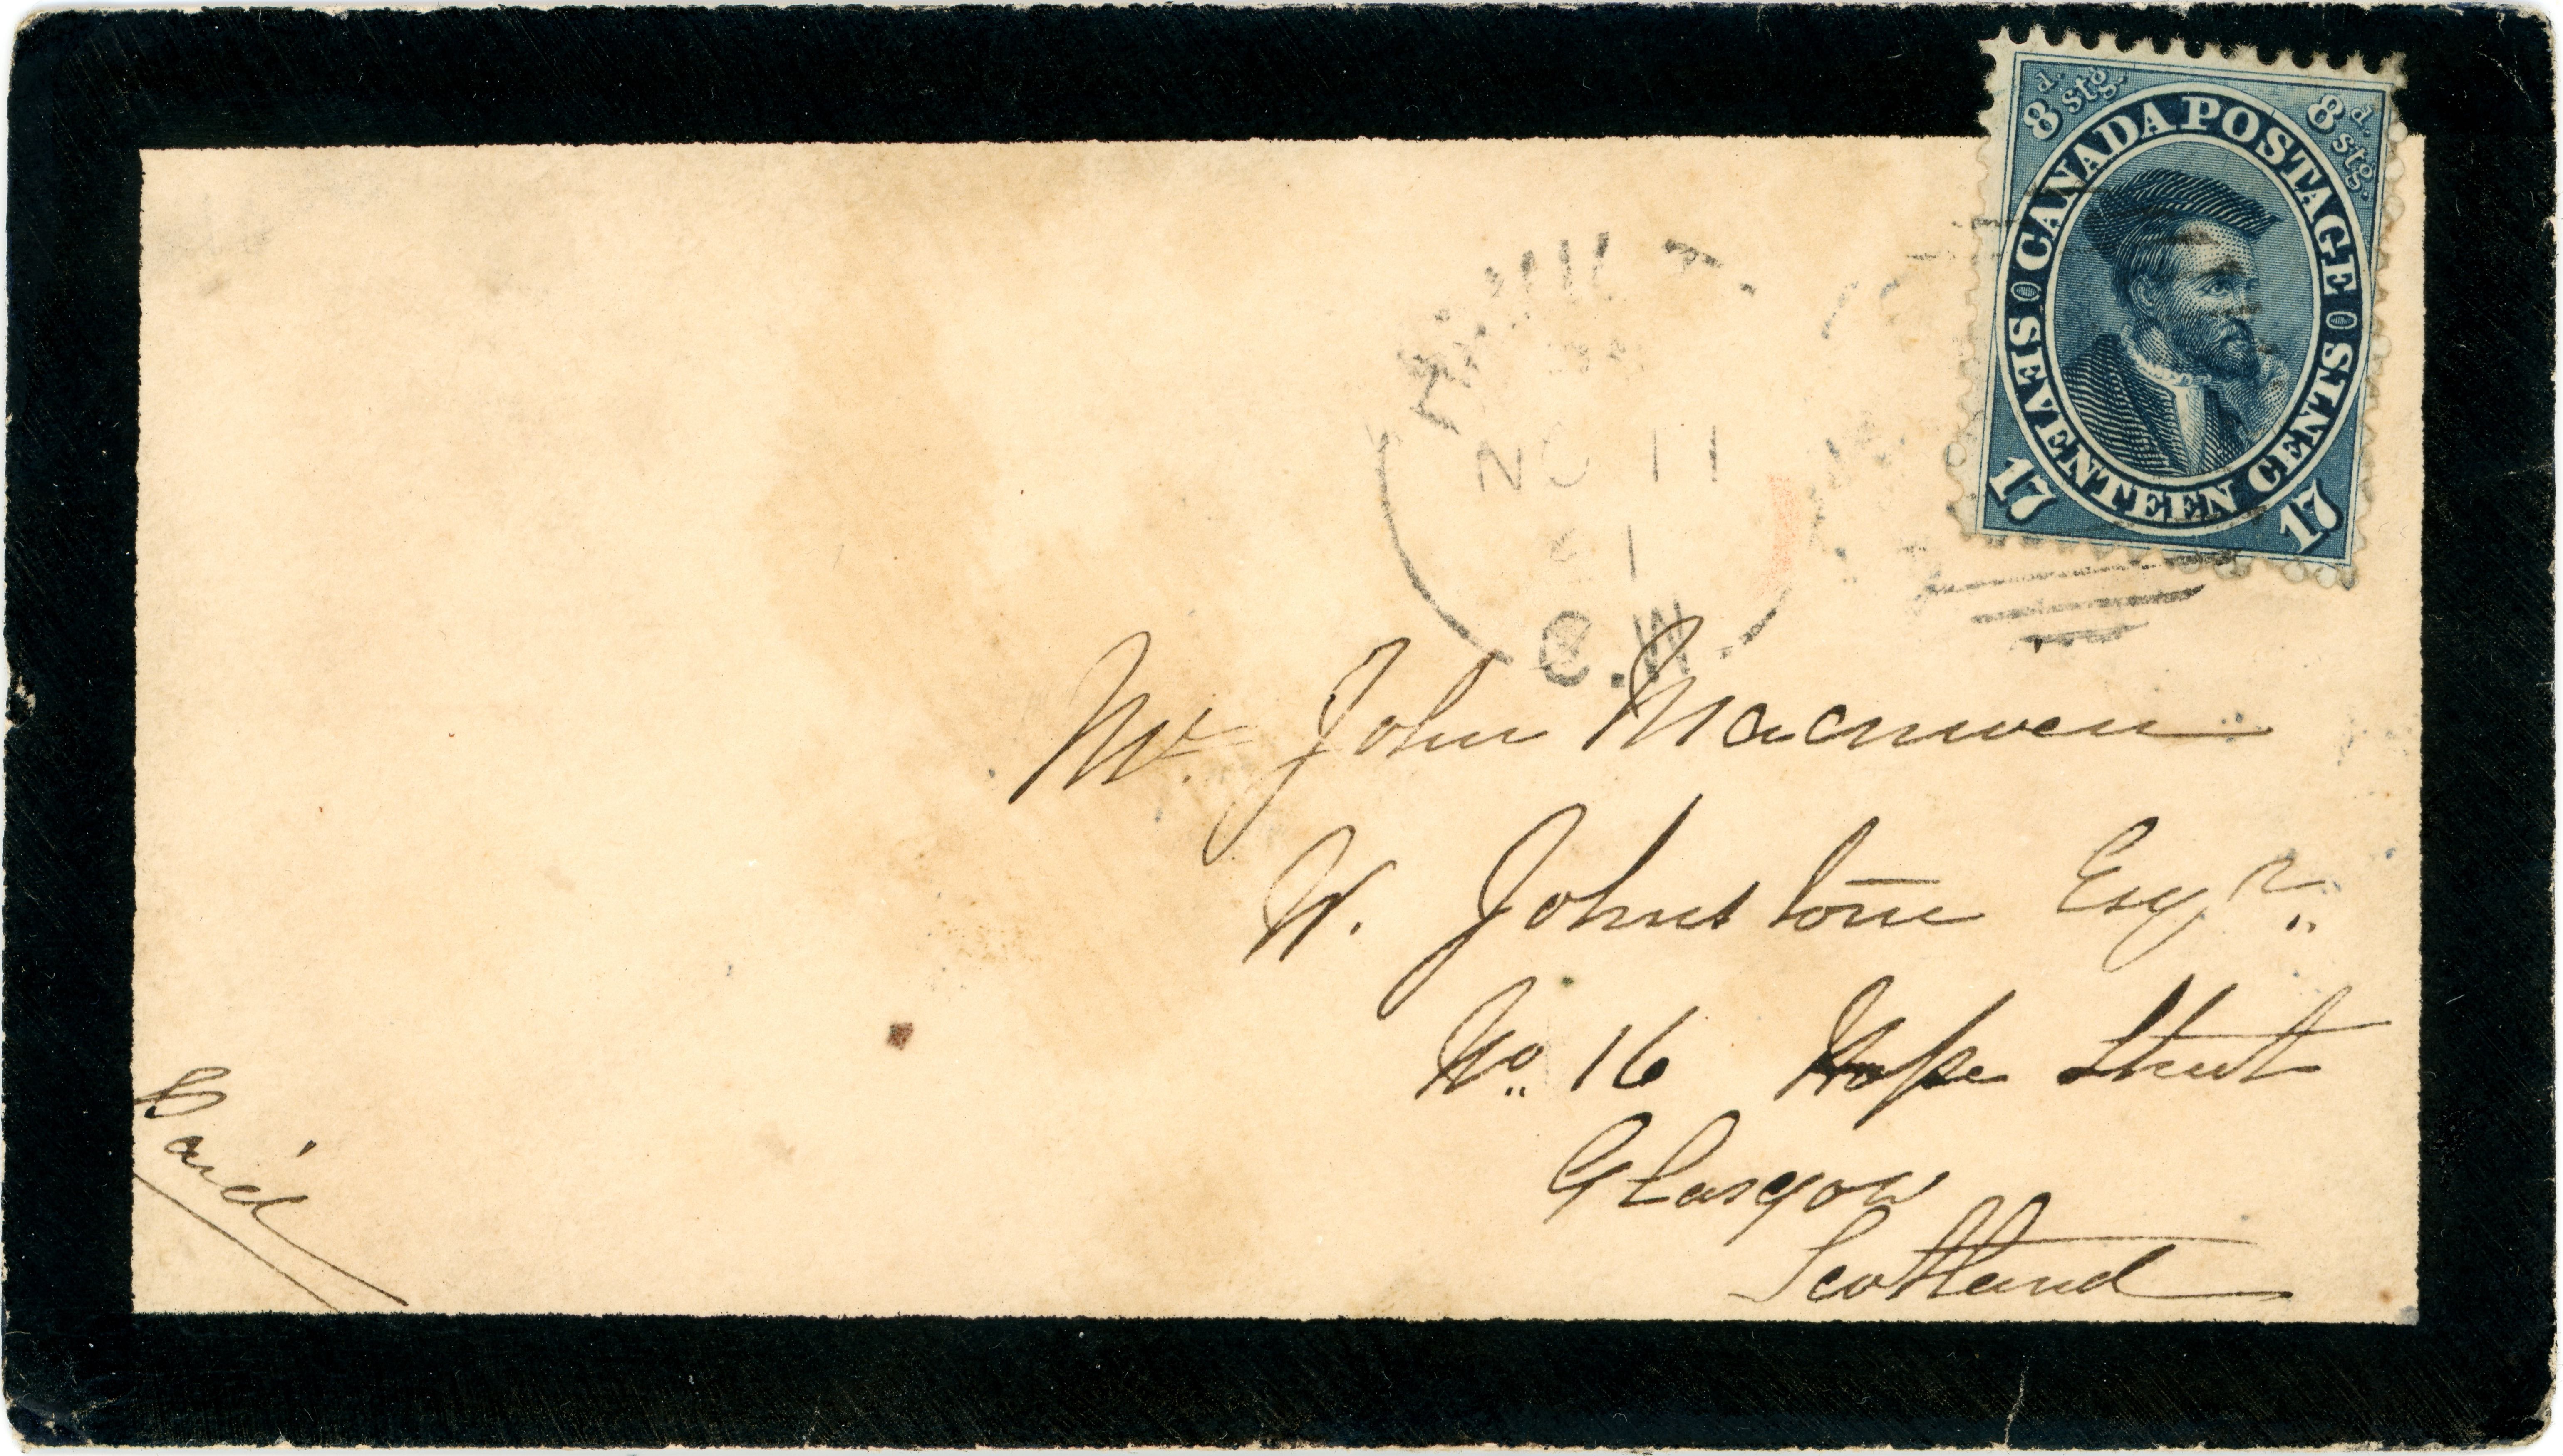 8d. stg.
8d. stg.
CANADA POSTAGE
SEVENTEEN CENTS
17
17
NO 11
1
C.W.
Mr. John
W. Johnstone Esqr.
No. 16 Hope Street
Glasgow
Scotland
Paid